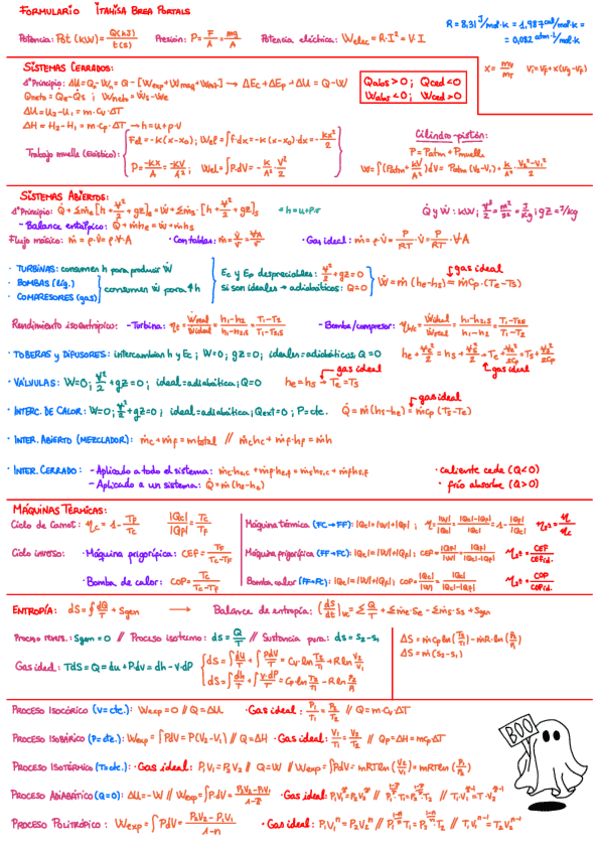 FORMULARIO ITAHISA BREA PORTALS
Potencia: Pot (kW) = Q(kJ)/t(s) Presión: P = F/A = mg/A Potencia eléctrica: Welec = R·I² = V·I
R = 8,31 J/mol·K = 1,987 cal/mol·K =
= 0,082 atm·l/mol·K
SISTEMAS CERRADOS:
1ᵉʳ Principio: ΔU = Q - W = Q - [Wexp + Wmaq + Wroz] → ΔEc + ΔEp + ΔU = Q - W
Qneto = Qe - Qs ; Wneto = Ws - We
ΔU = U2 - U1 = m·Cv·ΔT
ΔH = H2 - H1 = m·Cp·ΔT → h = u + p·v
Qabs > 0 ; Qced < 0
Wabs < 0 ; Wced > 0
x = mv/mT Vi = Vf + x(Vg - Vf)
Trabajo muelle (Elástico): Fel = -k(x - x0) ; Wel = ∫f dx = -k(x - x0)·dx = -kx²/2
P = -kx/A = -kV/A² ; Wel = ∫PdV = -k/A² · V²/2
Cilindro-pistón:
P = Patm + Pmuelle
W = ∫(Patm + kV/A²)dV = Patm (V2 - V1) + k/A² · (V2² - V1²)/2
SISTEMAS ABIERTOS:
1ᵉʳ Principio: Q̇ + Σṁe [h + V²/2 + gz]e = Ẇ + Σṁs · [h + V²/2 + gz]s * h = u + P·v
Q̇ y Ẇ : kW ; V²/2 = m²/s² = J/kg ; gz = J/kg
- Balance entálpico: Q̇ + ṁhe = Ẇ + ṁhs
Flujo másico: ṁ = ρ·V̇ = ρ·V·A · Con tablas: ṁ = V̇/v = VA/v · Gas ideal: ṁ = ρ·V̇ = P/RT · V̇ = P/RT · V·A
· TURBINAS: consumen h para producir Ẇ
· BOMBAS (líq.)
· COMPRESORES (gas)
consumen Ẇ para ↑h
Ec y Ep despreciables: V²/2 + gz = 0
Si son ideales → adiabáticos: Q = 0
gas ideal
Ẇ = ṁ (he - hs) = ṁCp·(Te - Ts)
Rendimiento isoentrópico: - Turbina: ηt = Ẇreal/Ẇideal = h1-h2/h1-h2,s = T1-T2/T1-T2s - Bomba/compresor: Ẇideal/Ẇreal = h1-h2,s/h1-h2 = T1-T2s/T1-T2
· TOBERAS y DIFUSORES: intercambian h y Ec ; W=0 ; gz=0 ; ideales=adiabáticos Q=0 he + Ve²/2 = hs + Vs²/2 → Te + Ve²/2Cp = Ts + Vs²/2Cp
gas ideal
· VÁLVULAS: W=0; V²/2 + gz = 0 ; ideal=adiabática; Q=0 he = hs → Te = Ts
gas ideal
· INTERC. DE CALOR: W=0; V²/2 + gz=0 ; ideal=adiabática; Qext=0 ; P=cte. Q̇ = ṁ(hs - he) = ṁCp (Ts - Te)
gas ideal
· INTER. ABIERTO (MEZCLADOR): ṁc + ṁf = ṁtotal // ṁchc + ṁf·hf = ṁh
· INTER. CERRADO: - Aplicado a todo el sistema: ṁche,c + ṁfhe,f = ṁchs,c + ṁfhs,f · caliente cede (Q<0)
- Aplicado a un sistema: Q̇ = ṁ(hs - he) · frío absorbe (Q>0)
MÁQUINAS TÉRMICAS:
Ciclo de Carnot: ηc = 1 - TF/TC |QC|/|QF| = TC/TF Máquina térmica (FC → FF): |QC| = |W| + |QF| ; η = |W|/|QC| = |QC|-|QF|/|QC| = 1 - |QF|/|QC| = η/ηc
Ciclo inverso: · Máquina frigorífica: CEF = TF/TC-TF Máquina frigorífica (FF → FC): |QC| = |W| + |QF| ; CEF = |QF|/|W| = |QF|/|QC|-|QF| = CEF/CEFid.
· Bomba de calor: COP = TC/TC-TF Bomba calor (FF → FC): |QC| = |W| + |QF| COP = |QC|/|W| = |QC|/|QC|-|QF| = COP/COPid.
ENTROPÍA: dS = ∮ dQ/T + Sgen → Balance de entropía: (dS/dt)vc = Σ Q̇/T + Σṁe·Se - Σṁs·Ss + Sgen
Proceso revers.: Sgen = 0 // Proceso isotermo: dS = Q/T // Sustancia pura: dS = S2 - S1
ΔS = ṁCp ln(T2/T1) - ṁR·ln(P2/P1)
ΔS = ṁ(S2 - S1)
Gas ideal: TdS = Q = du + Pdv = dh - v·dP
dS = ∫dU/T + ∫PdV/T = Cv·ln T2/T1 + R ln V2/V1
dS = ∫dh/T + ∫v·dP/T = Cp·ln T2/T1 - R ln P2/P1
PROCESO ISOCÓRICO (V=cte.): Wexp = 0 // Q = ΔU · Gas ideal: P1/T1 = P2/T2 // Q = m·Cv·ΔT
PROCESO ISOBÁRICO (P=cte.): Wexp = ∫PdV = P(V2 - V1) // Q = ΔH · Gas ideal: V1/T1 = V2/T2 // Qp = ΔH = mCpΔT
PROCESO ISOTÉRMICO (T=cte.): · Gas ideal: P1V1 = P2V2 // Q = W // Wexp = ∫PdV = mRT ln(V2/V1) = mRT ln(P1/P2)
PROCESO ADIABÁTICO (Q=0): ΔU = -W // Wexp = ∫PdV = P2V2 - P1V1/1-γ · Gas ideal: P1V1^γ = P2V2^γ // P1^(1-γ/γ)·T1 = P2^(1-γ/γ)·T2 // T1·V1^(γ-1) = T2·V2^(γ-1)
PROCESO POLITRÓPICO: Wexp = ∫PdV = P2V2 - P1V1/1-n · Gas ideal: P1V1^n = P2V2^n // P1^(1-n/n)·T1 = P2^(1-n/n)·T2 // T1V1^(n-1) = T2V2^(n-1)
BOO